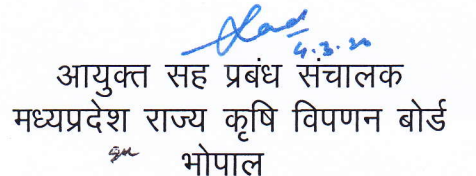 4.3.20
आयुक्त सह प्रबंध संचालक
मध्यप्रदेश राज्य कृषि विपणन बोर्ड
भोपाल